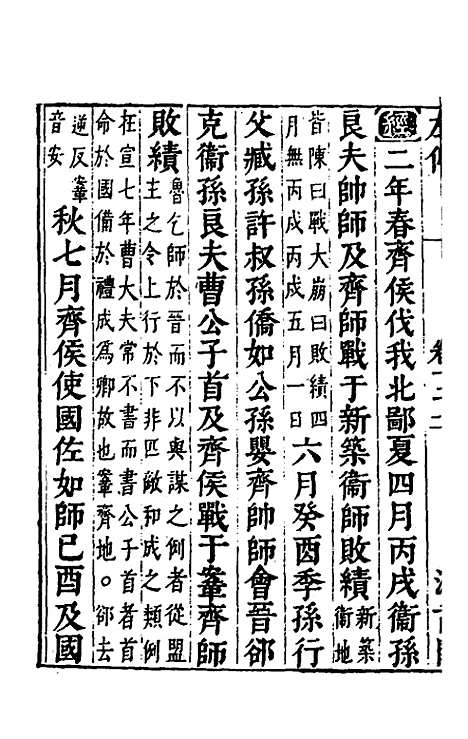 經二年春齊侯伐我北鄙夏四月丙戌衞孫
良夫帥師及齊師戰于新築衞師敗績新築
衞地
皆陳曰戰大崩曰敗績四
月無丙戌丙戌五月一日六月癸酉季孫行
父臧孫許叔孫僑如公孫嬰齊帥師會晉郤
克衞孫良夫曹公子首及齊侯戰于鞌齊師
敗績魯乞師於晉而不以與謀之例者從盟
主之令上行於下非匹敵和成之類例
在宣七年曹大夫常不書而書公子首者首
命於國備於禮成爲卿故也鞌齊地。郤去
逆反鞌
音安秋七月齊侯使國佐如師己酉及國